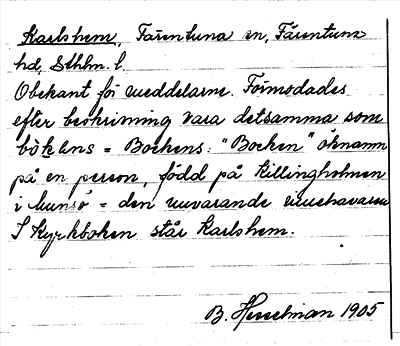 Karlshem, Färentuna sn, Färentuna
hd, Sthlm. l.
Obekant för meddelarne. Förmodades
efter beskrivning vara detsamma som
bökens = Bockens: "Bocken" öknamn
på en person, född på Killingholmen
i Munsö = den nuvarande innehavaren
I kyrkboken står Karlshem.
B. Hesselman 1905